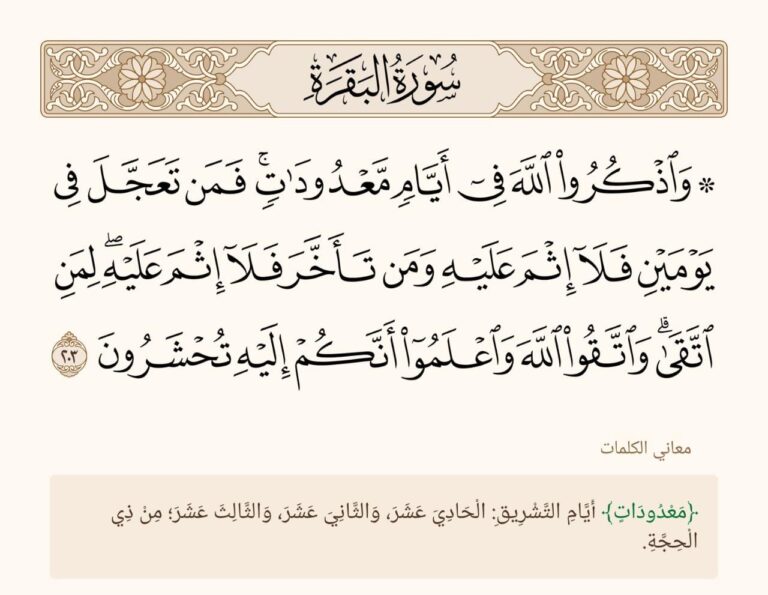 سُورَةُ البَقَرَةِ
۞ وَٱذۡكُرُواْ ٱللَّهَ فِيٓ أَيَّامٖ مَّعۡدُودَٰتٖۚ فَمَن تَعَجَّلَ فِي
يَوۡمَيۡنِ فَلَآ إِثۡمَ عَلَيۡهِ وَمَن تَأَخَّرَ فَلَآ إِثۡمَ عَلَيۡهِۖ لِمَنِ
ٱتَّقَىٰۗ وَٱتَّقُواْ ٱللَّهَ وَٱعۡلَمُوٓاْ أَنَّكُمۡ إِلَيۡهِ تُحۡشَرُونَ ٢٠٣
معاني الكلمات
﴿مَعْدُودَاتٍ﴾ أيَّامِ التَّشْرِيقِ: الْحَادِيَ عَشَرَ، وَالثَّانِيَ عَشَرَ، وَالثَّالِثَ عَشَرَ؛ مِنْ ذِي
الْحِجَّةِ.